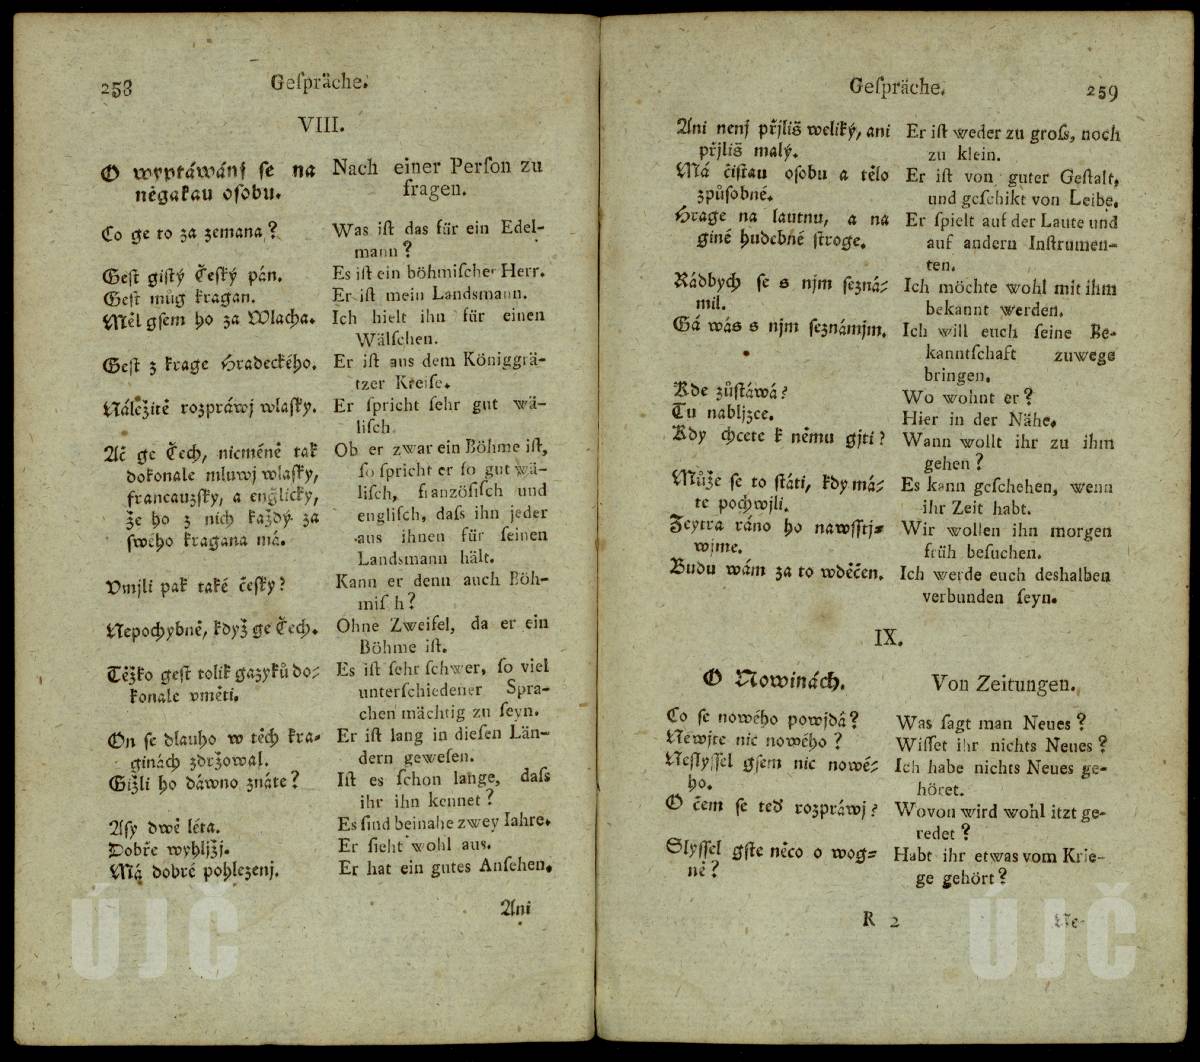 258
Geſpräche.
VIII.
O wyptáwánj ſe na
něgakau oſobu.
Co ge to za zemana?
Geſt giſtý Český pán.
Geſt můg kragan.
Měl gſem ho za Wlacha.
Geſt z krage Hradeckého.
Náležitě rozpráwj wlaſky.
Ač ge Čech, nicméně tak
dokonale mluwj wlaſky,
francauzſky, a englicky,
že ho z nich každý za
ſwého kragana má.
Vmjli pak také česky?
Nepochybně, když ge Čech.
Těžko geſt tolik gazyků do⸗
konale vměti.
On ſe dlauho w těch kra⸗
ginách zdržowal.
Gižli ho dáwno znáte?
Aſy dwě léta.
Dobře wyhljžj.
Má dobré pohlezenj.
Nach einer Perſon zu
fragen.
Was iſt das für ein Edel-
mann?
Es iſt ein böhmiſcher Herr.
Er iſt mein Landsmann.
Ich hielt ihn für einen
Wälſchen.
Er iſt aus dem Königgrä-
tzer Kreiſe.
Er ſpricht ſehr gut wä-
liſch
Ob er zwar ein Böhme iſt,
ſo ſpricht er ſo gut wä-
liſch, franzöſiſch und
engliſch, daſs ihn jeder
aus ihnen für ſeinen
Landsmann hält.
Kann er denn auch Böh-
miſ h?
Ohne Zweifel, da er ein
Böhme iſt.
Es iſt ſehr ſchwer, ſo viel
unterſchiedener Spra-
chen mächtig zu ſeyn.
Er iſt lang in dieſen Län-
dern geweſen.
Iſt es ſchon lange, daſs
ihr ihn kennet?
Es ſind beinahe zwey Iahre.
Er ſieht wohl aus.
Er hat ein gutes Anſehen.
Ani
Geſpräche.
259
Ani nenj přjliš weliký, ani
přjliš malý.
Má čiſtau oſobu a tělo
způſobné.
Hrage na lautnu, a na
giné hudebné ſtroge.
Rádbych ſe s njm ſezná⸗
mil.
Gá wás s njm ſeznámjm.
Kde zůſtáwá?
Tu nabljzce.
Kdy chcete k němu gjti?
Může ſe to ſtáti, kdy má⸗
te pochwjli.
Zeytra ráno ho nawſſtj⸗
wjme.
Budu wám za to wděčen.
Er iſt weder zu groſs, noch
zu klein.
Er iſt von guter Geſtalt,
und geſchikt von Leibe.
Er ſpielt auf der Laute und
auf andern Inſtrumen-
ten.
Ich möchte wohl mit ihm
bekannt werden.
Ich will euch ſeine Be-
kanntſchaft zuwege
bringen.
Wo wohnt er?
Hier in der Nähe.
Wann wollt ihr zu ihm
gehen?
Es kann geſchehen, wenn
ihr Zeit habt.
Wir wollen ihn morgen
früh beſuchen.
Ich werde euch deshalben
verbunden ſeyn.
IX.
O Nowinách.
Co ſe nowého powjdá?
Newjte nic nowého?
Neſlyſſel gſem nic nowé⸗
ho.
O čem ſe teď rozpráwj?
Slyſſel gſte něco o wog⸗
ně?
Von Zeitungen.
Was ſagt man Neues?
Wiſſet ihr nichts Neues?
Ich habe nichts Neues ge-
höret.
Wovon wird wohl itzt ge-
redet?
Habt ihr etwas vom Krie-
ge gehört?
R 2
Ne-
ÚJČ
ÚJČ